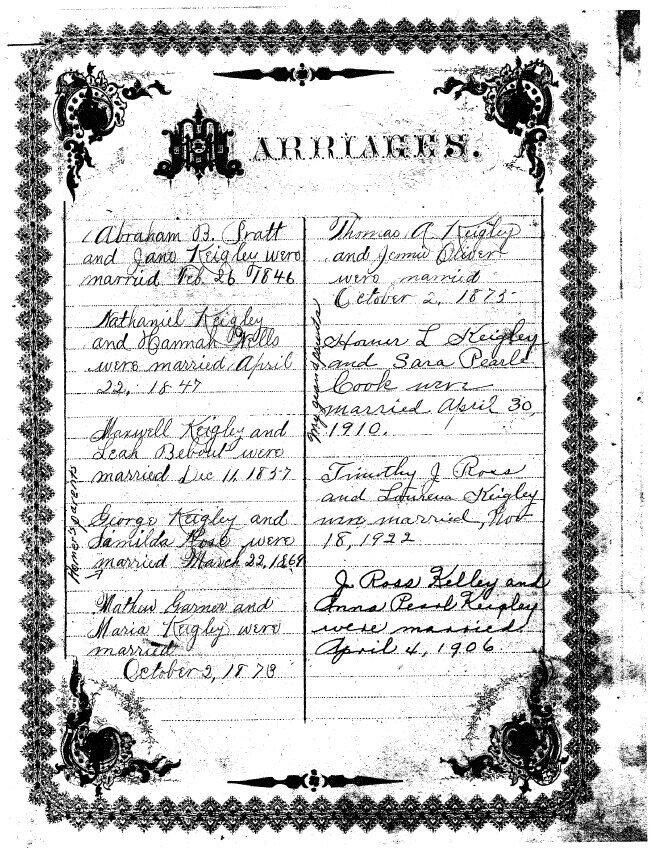 MARRIAGES.
Abraham B. Pratt
and Jane Keigley were
married Feb. 26 1846
Nathaniel Keigley
and Hannah Wells
were married April
22, 1847
Maxwell Keigley and
Leah Bebout were
married Dec 11, 1857
Homer's parents
George Keigley and
Samilda Rose were
married March 22, 1869
Mathew Garner and
Maria Keigley were
married
October 2, 1873
Thomas A. Keigley
and Jennie Oliver
were married
October 2, 1875
My grandparents
Homer L Keigley
and Sara Pearle
Cook were
married April 30,
1910.
Timothy J. Ross
and Lourena Keigley
were married, Nov
18, 1922
J. Ross Kelley and
Anna Pearl Keigley
were married
April 4, 1906